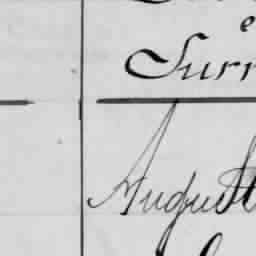 e
Surr
August